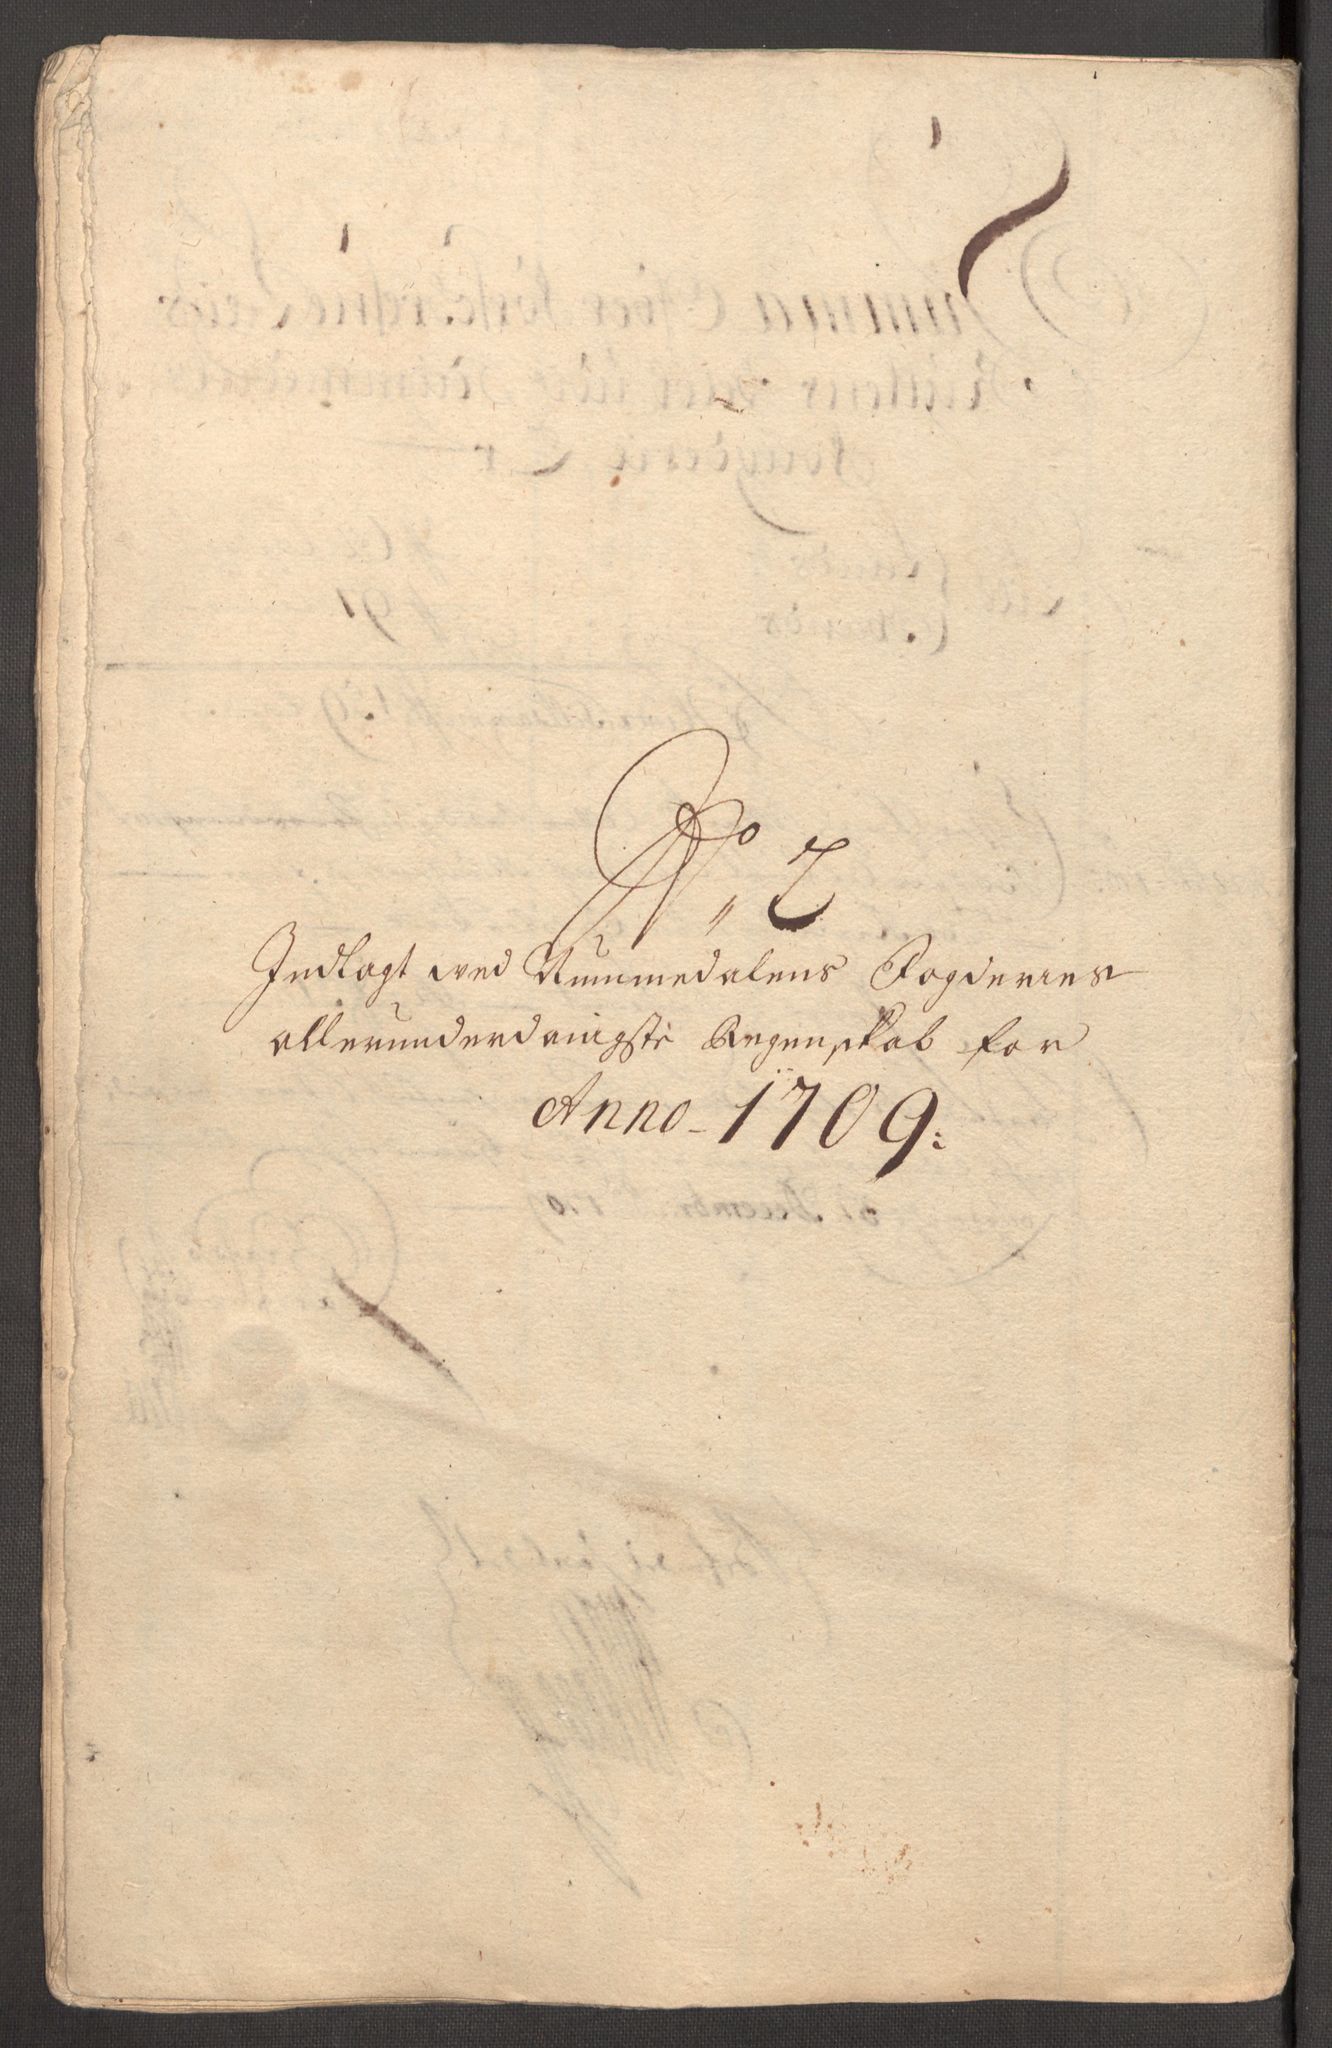 No. 2
Indlagt wed Nummedalens Fogderies
allerunderdanigste Regenskab for
Anno 1709: